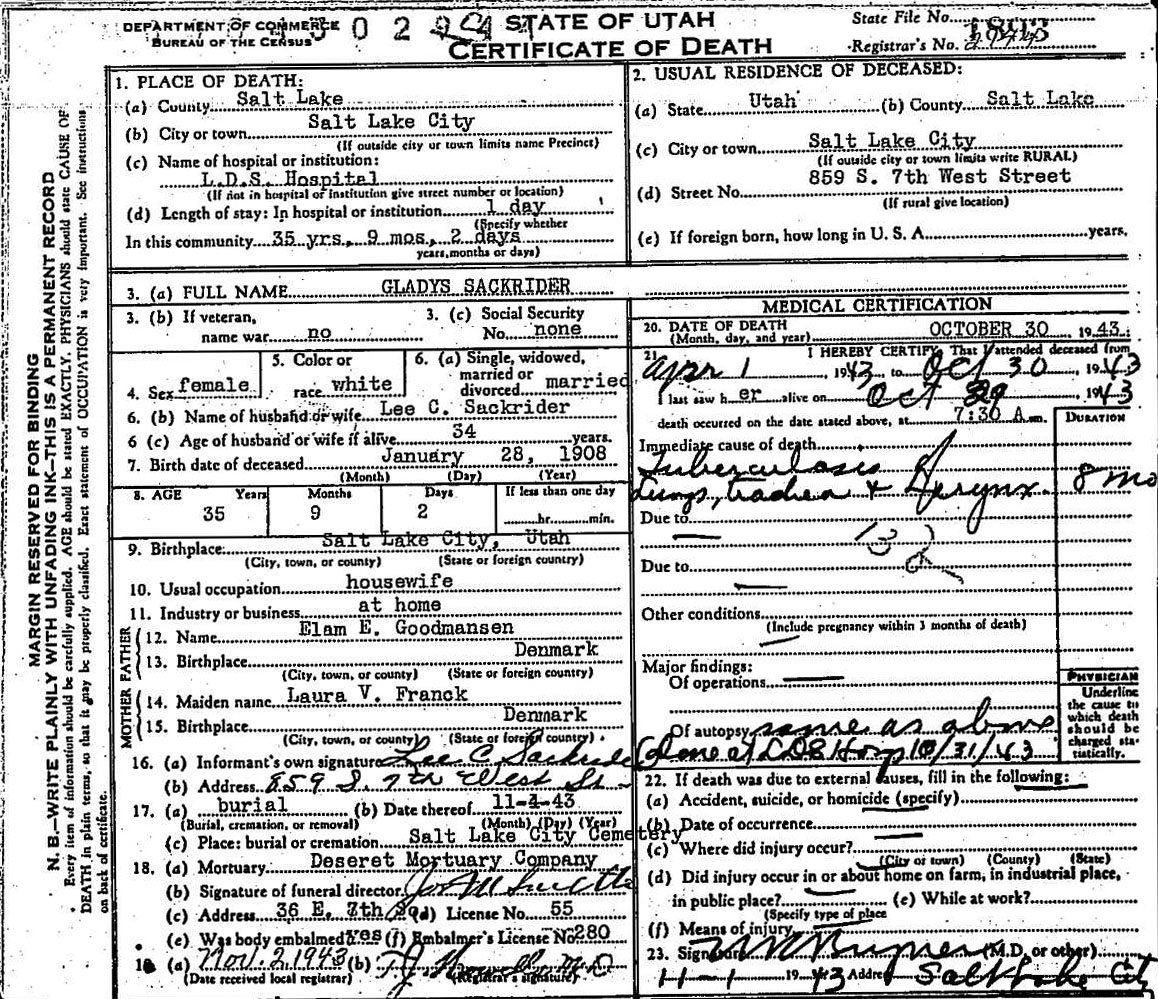 DEPARTMENT OF COMMERCE
BUREAU OF THE CENSUS
STATE OF UTAH
CERTIFICATE OF DEATH
State File No.
Registrar's No.
MARGIN RESERVED FOR BINDING
N. B.—WRITE PLAINLY WITH UNFADING INK—THIS IS A PERMANENT RECORD
Every item of information should be carefully supplied. AGE should be stated EXACTLY. PHYSICIANS should state CAUSE OF
DEATH in plain terms, so that it may be properly classified. Exact statement of OCCUPATION is very important. See instructions
on back of certificate.
1. PLACE OF DEATH:
(a) County Salt Lake
(b) City or town Salt Lake City
(If outside city or town limits name Precinct)
(c) Name of hospital or institution:
L.D.S. Hospital
(If not in hospital or institution give street number or location)
(d) Length of stay: In hospital or institution 1 day
(Specify whether
In this community 35 yrs, 9 mos, 2 days
years, months or days)
2. USUAL RESIDENCE OF DECEASED:
(a) State Utah (b) County Salt Lake
(c) City or town Salt Lake City
(If outside city or town limits write RURAL)
(d) Street No. 859 S. 7th West Street
(If rural give location)
(e) If foreign born, how long in U. S. A. years.
3. (a) FULL NAME GLADYS SACKRIDER
3. (b) If veteran, name war no
3. (c) Social Security No. none
4. Sex female
5. Color or race white
6. (a) Single, widowed, married or divorced married
6. (b) Name of husband or wife Lee C. Sackrider
6 (c) Age of husband or wife if alive 34 years.
7. Birth date of deceased January 28, 1908
(Month) (Day) (Year)
8. AGE Years Months Days If less than one day
35 9 2 hr. min.
9. Birthplace: Salt Lake City, Utah
(City, town, or county) (State or foreign country)
10. Usual occupation housewife
11. Industry or business at home
FATHER
12. Name Elam E. Goodmansen
13. Birthplace Denmark
(City, town, or county) (State or foreign country)
MOTHER
14. Maiden name Laura V. Franck
15. Birthplace Denmark
(City, town, or county) (State or foreign country)
16. (a) Informant's own signature Lee C Sackrider
(b) Address 859 S. 7th West St
17. (a) burial (b) Date thereof 11-4-43
(Burial, cremation, or removal) (Month) (Day) (Year)
(c) Place: burial or cremation Salt Lake City Cemetery
18. (a) Mortuary Deseret Mortuary Company
(b) Signature of funeral director
(c) Address 36 E. 7th So. (d) License No. 55
(e) Was body embalmed yes (f) Embalmer's License No. 280
(a) Nov. 2, 1943 (b)
(Date received local registrar) (Registrar's signature)
MEDICAL CERTIFICATION
20. DATE OF DEATH OCTOBER 30 1943
(Month, day, and year)
21 I HEREBY CERTIFY, That I attended deceased from
Apr 1 1943 to Oct 30, 1943
I last saw her alive on Oct 1943
death occurred on the date stated above, at 7:30 A m.
DURATION
Immediate cause of death
Tuberculosis of
Lungs, trachea + Larynx 8 mo
Due to
Due to
Other conditions
(Include pregnancy within 3 months of death)
Major findings:
Of operations
Of autopsy same as above
Done at LDS Hosp 10/31/43
PHYSICIAN
Underline
the cause to
which death
should be
charged sta-
tistically.
22. If death was due to external causes, fill in the following:
(a) Accident, suicide, or homicide (specify)
(b) Date of occurrence
(c) Where did injury occur?
(City or town) (County) (State)
(d) Did injury occur in or about home on farm, in industrial place,
in public place? (e) While at work?
(Specify type of place
(f) Means of injury
23. Signature (M.D. or other)
11-1 1943 Address Salt Lake City